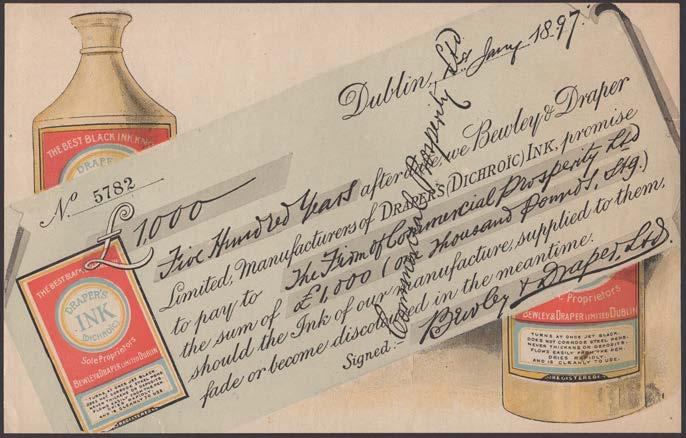 THE BEST BLACK INK KNO
DRAPER
Dublin, 1st Jany 1897.
No. 5782
£1,000
Five Hundred Years after date we Bewley & Draper
Limited, Manufacturers of DRAPER'S (DICHROIC) INK, promise
to pay to The Firm of Commercial Prosperity Ltd
the sum of £1,000 (One Thousand Pounds, Stg.)
should the Ink of our manufacture supplied to them,
fade or become discolored in the meantime.
Signed: Bewley & Draper, Ltd.
Commercial Prosperity Ltd
THE BEST BLACK
DRAPER'S
INK
(DICHROIC)
Sole Proprietors
BEWLEY & DRAPER LIMITED DUBLIN
TURNS AT ONCE JET BLACK.
DOES NOT CORRODE STEEL PENS.
NEVER THICKENS OR DEPOSITS.
FLOWS EASILY FROM THE PEN.
DRIES RAPIDLY.
AND IS CLEANLY TO USE.
REGISTERED
Proprietors
BEWLEY & DRAPER LIMITED DUBLIN
TURNS AT ONCE JET BLACK.
DOES NOT CORRODE STEEL PENS.
NEVER THICKENS OR DEPOSITS.
FLOWS EASILY FROM THE PEN.
DRIES RAPIDLY.
AND IS CLEANLY TO USE.
REGISTERED